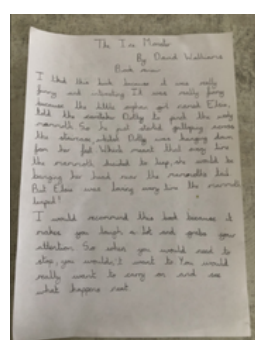 The Ice Monster
By David Walliams
Book review
I liked this book because it was really
funny and exciting. It was really funny
because the little orphan girl named Elsie,
told the Dotty to push the woolly
mammoth. So he just started galloping across
the staircase, whilst Dotty was hanging down
from her foot. Which meant that every time
the mammoth decided to leap, she would be
banging her head near the mammoths tail.
But Elsie was every time the mammoth
leaped!
I would recommend this book because it
makes you laugh a lot and grabs your
attention. So when you would need to
stop, you wouldn't want to. You would
really want to carry on and see
what happens next.